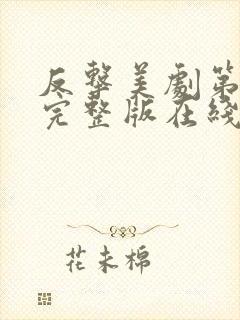 反擊美劇第
完整版在綫
花未棉